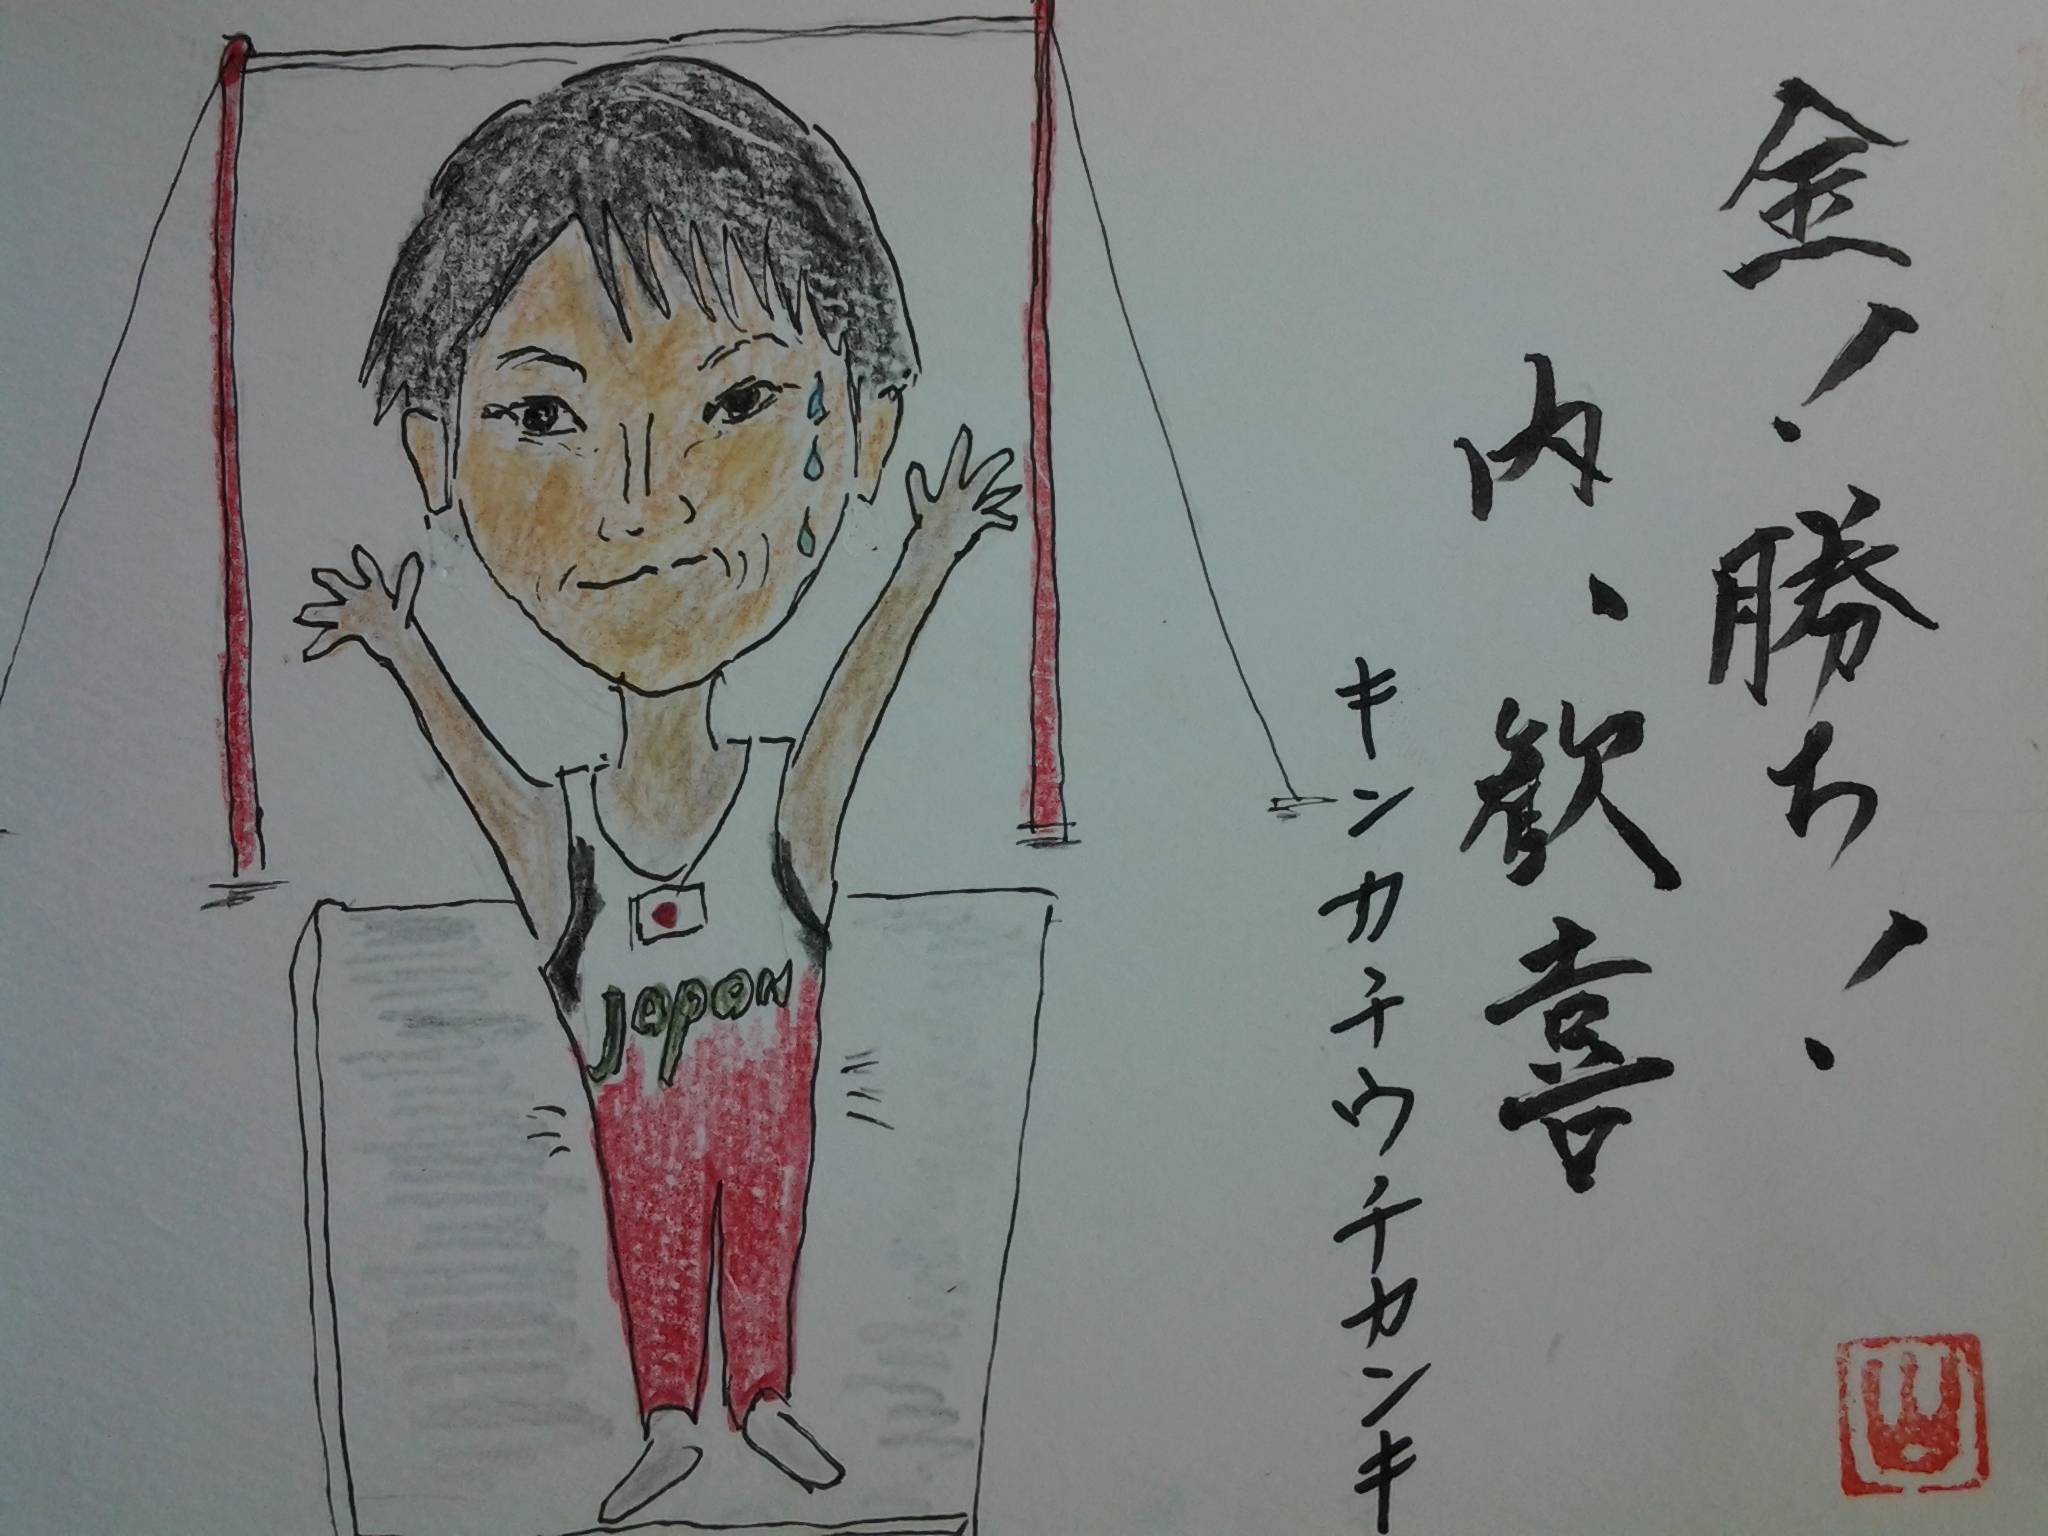 金！勝ち！
内、歓喜
キンカチウチカンキ
Japan